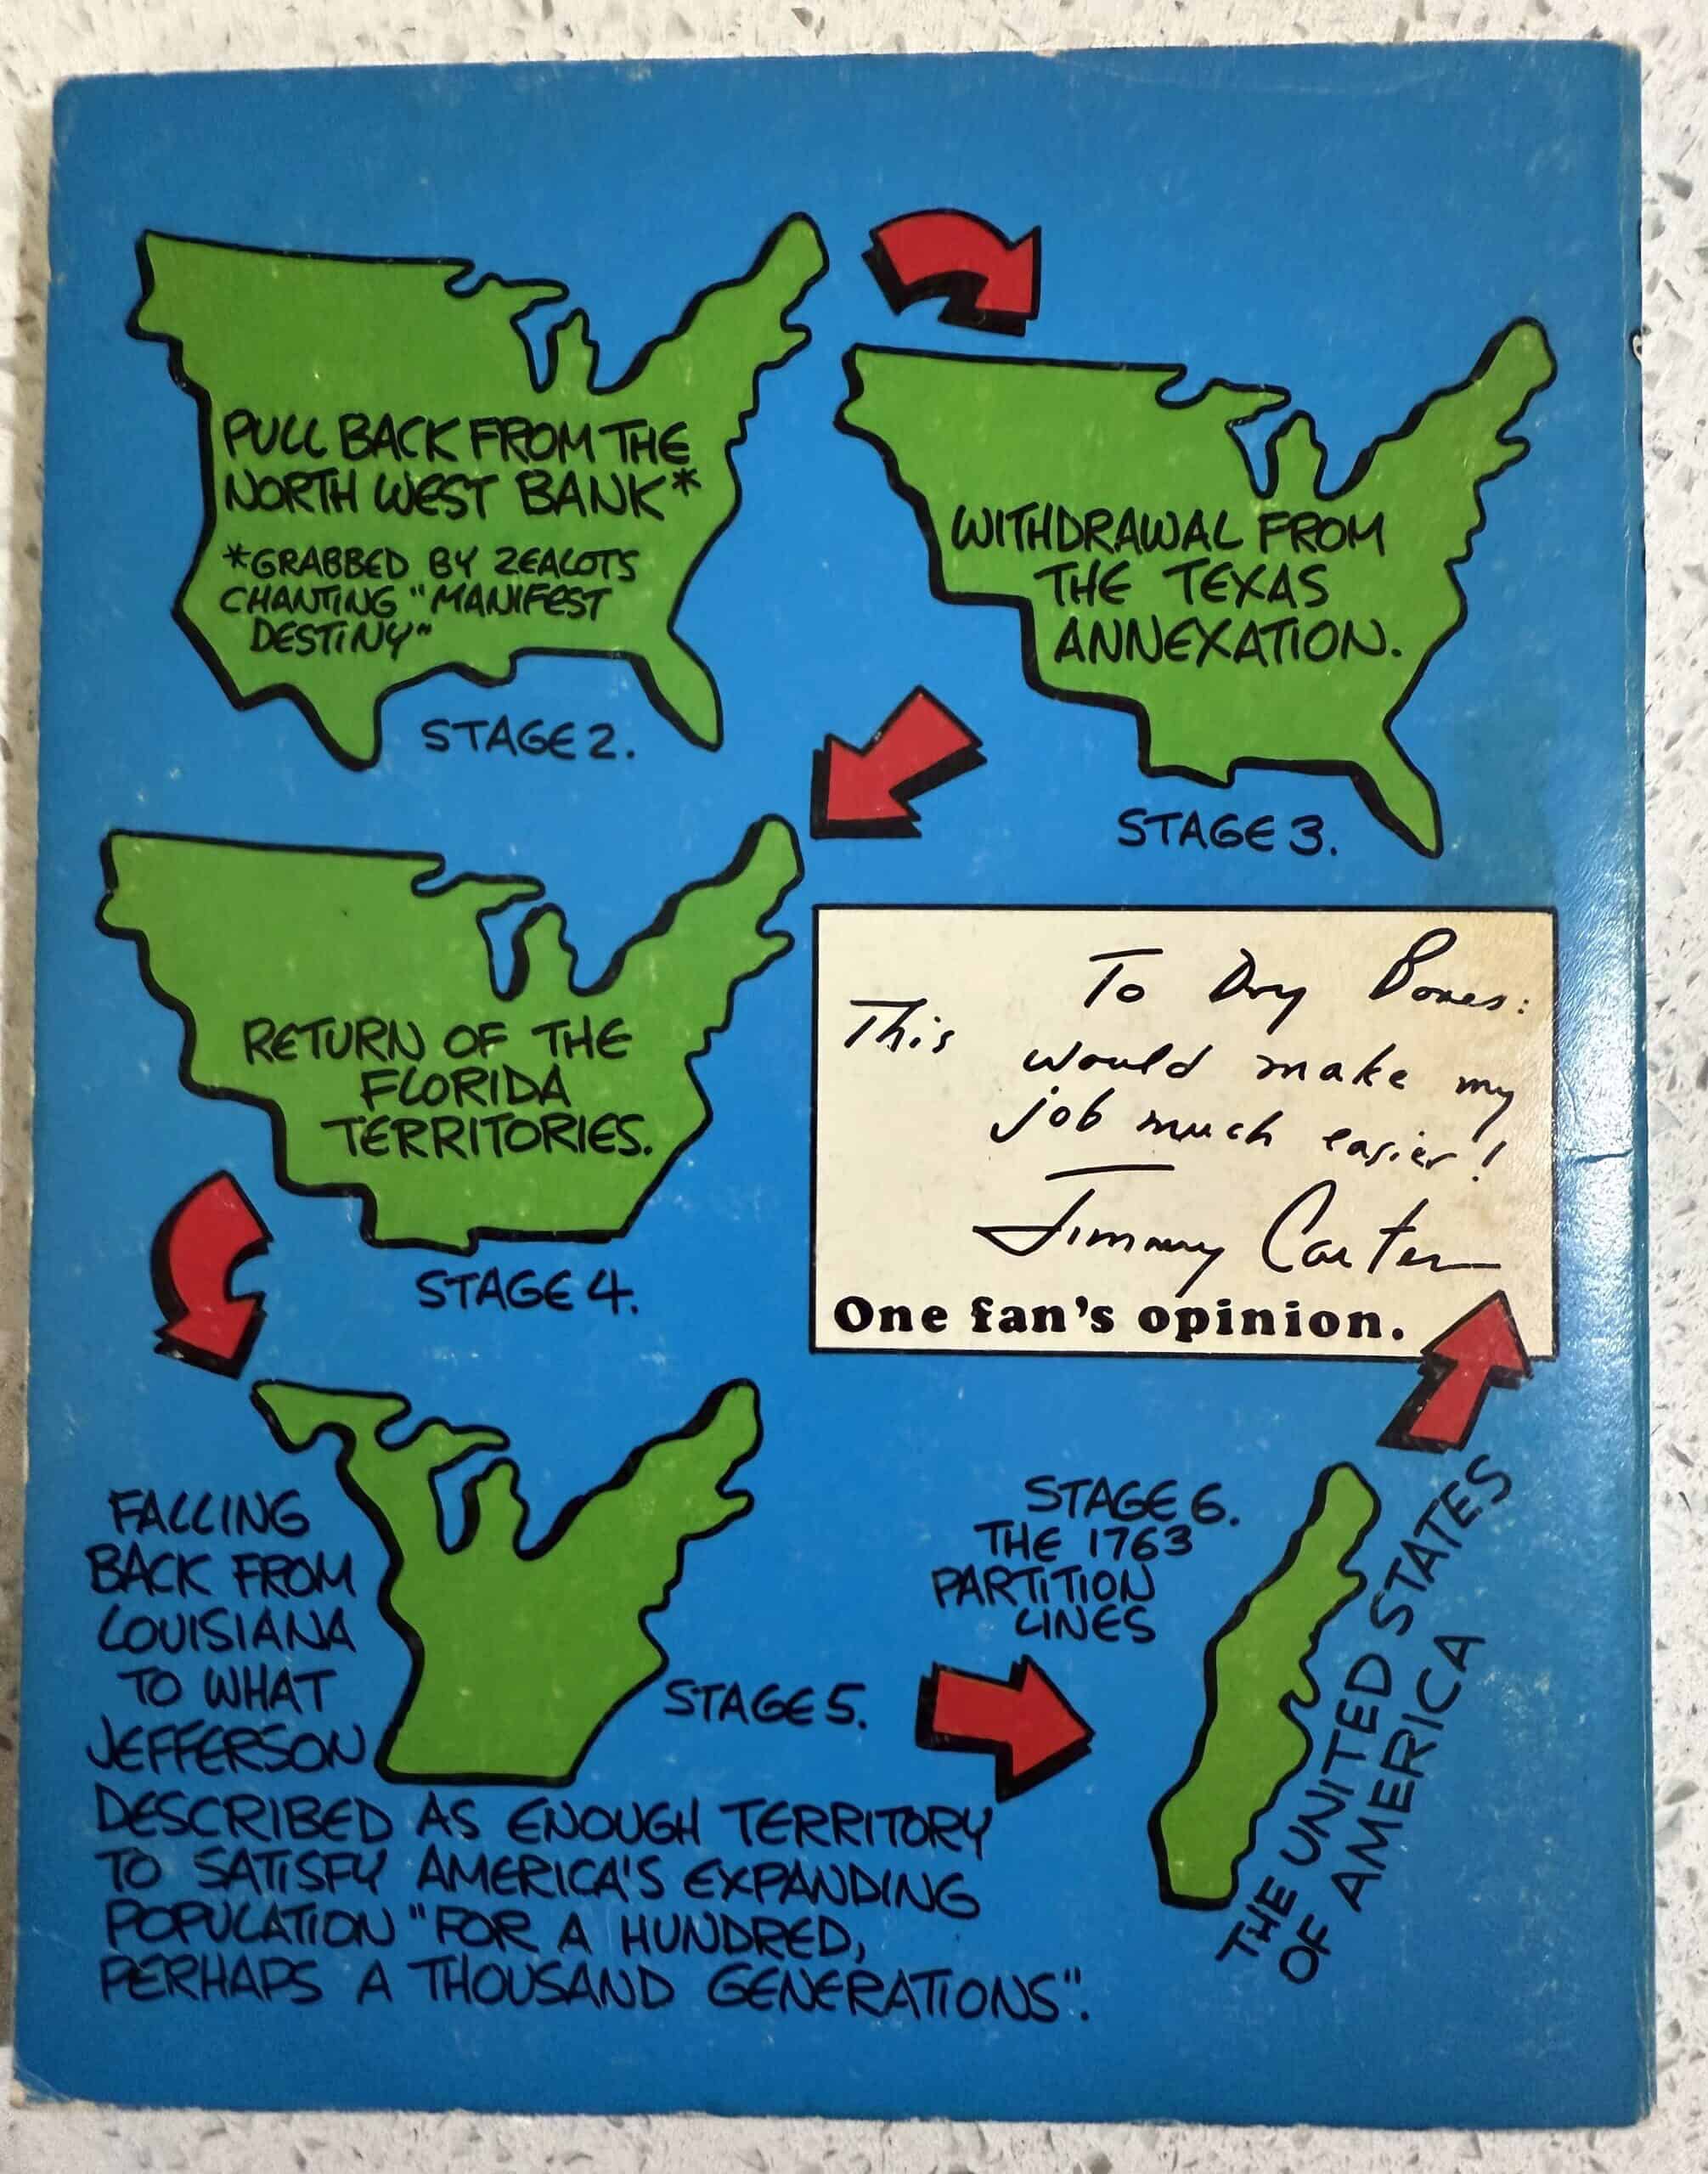 PULL BACK FROM THE
NORTH WEST BANK*
*GRABBED BY ZEALOTS
CHANTING "MANIFEST
DESTINY"
STAGE 2.
WITHDRAWAL FROM
THE TEXAS
ANNEXATION.
STAGE 3.
RETURN OF THE
FLORIDA
TERRITORIES.
STAGE 4.
FALLING
BACK FROM
LOUISIANA
TO WHAT
JEFFERSON
DESCRIBED AS ENOUGH TERRITORY
TO SATISFY AMERICA'S EXPANDING
POPULATION "FOR A HUNDRED,
PERHAPS A THOUSAND GENERATIONS".
STAGE 5.
STAGE 6.
THE 1763
PARTITION
LINES
THE UNITED STATES
OF AMERICA
To Dry Bones:
This would make my
job much easier!
Jimmy Carter
One fan's opinion.